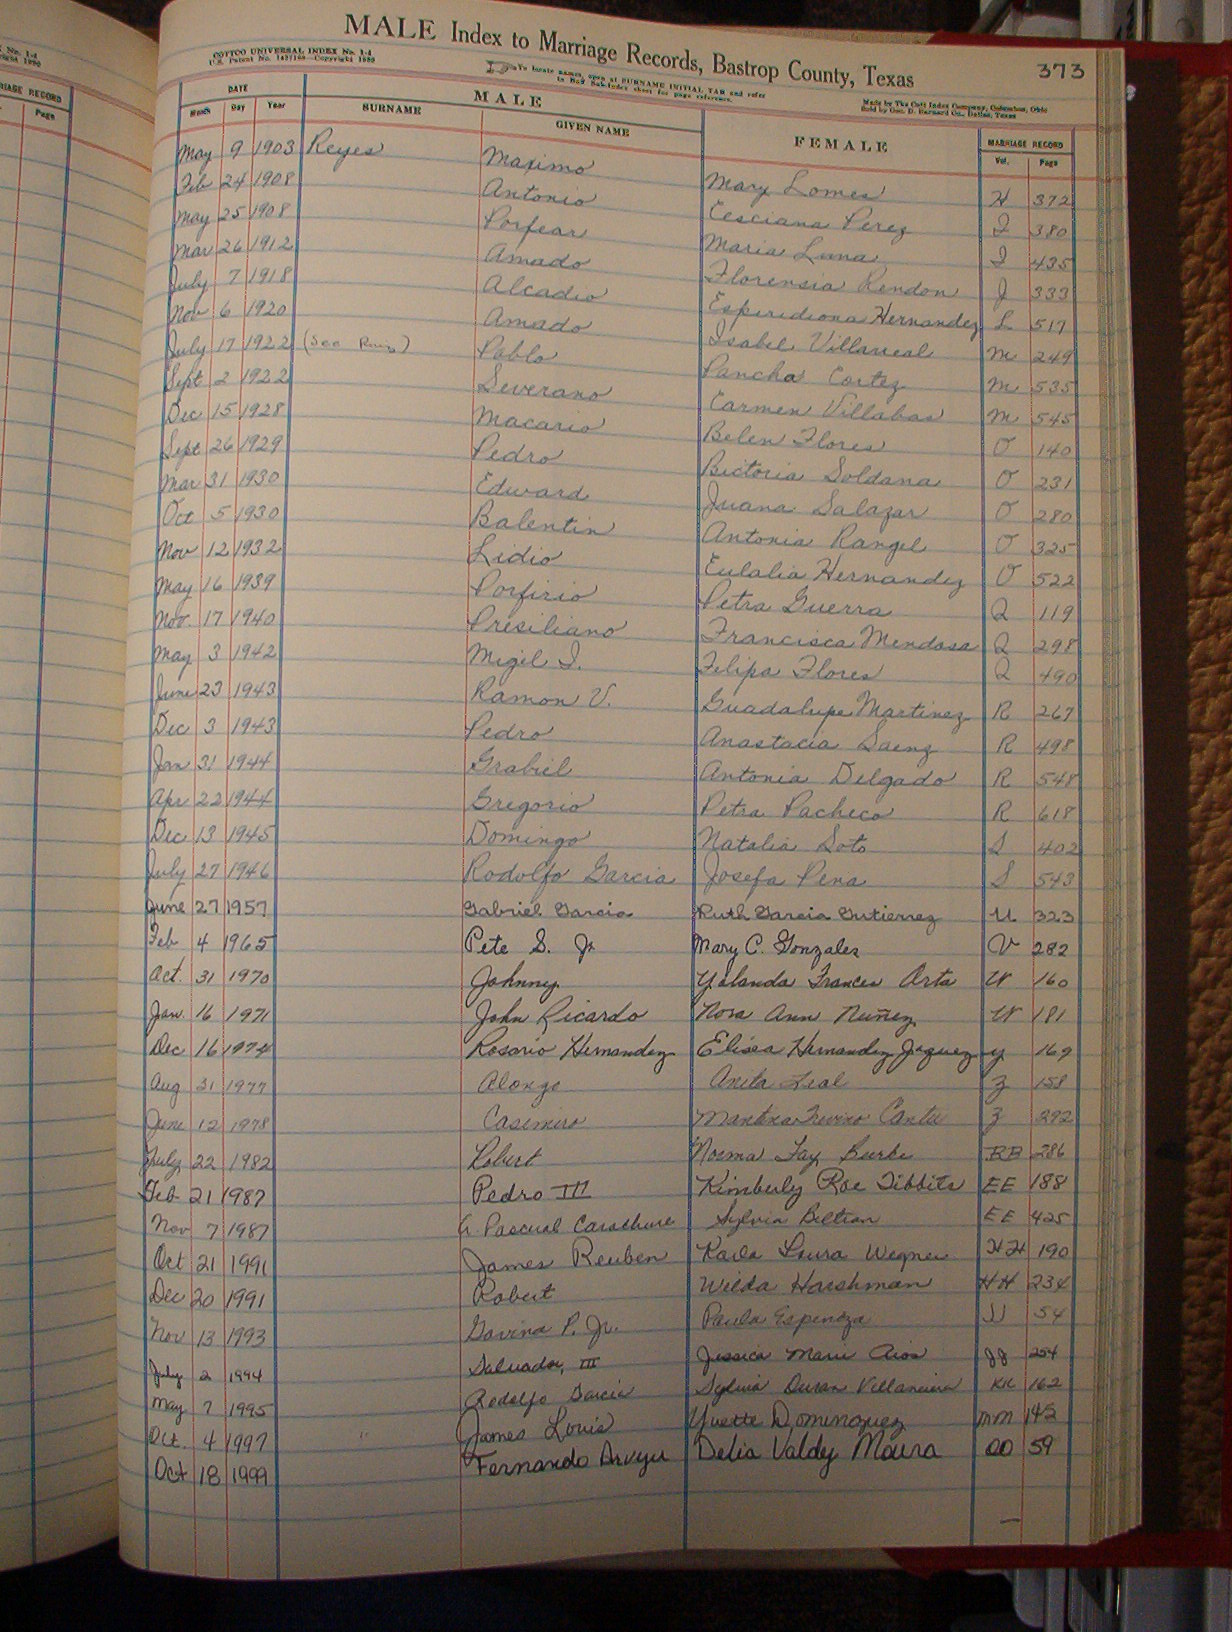 No. 1-4
RIAGE RECORD
Page
MALE Index to Marriage Records, Bastrop County, Texas
373
COTTCO UNIVERSAL INDEX No. 1-4
To locate names, open at SURNAME INITIAL TAB and refer
Made by The Cott Index Company, Columbus, Ohio
Sold by Geo. D. Barnard Co., Dallas, Texas
DATE MALE FEMALE MARRIAGE RECORD
Month Day Year SURNAME GIVEN NAME Vol. Page
May 9 1903 Reyes Maximo Mary Lomes H 372
Feb 24 1908 Antonio Cesciana Perez I 380
May 25 1908 Porfear Maria Luna I 435
Mar 26 1912 Amado Florensia Rendon J 333
July 7 1918 Alcadio Esperidiona Hernandez L 517
Nov 6 1920 Amado Isabel Villarreal M 249
July 17 1922 (See Ruiz) Pablo Pancha Cortez M 535
Sept 2 1922 Severano Carmen Villabas M 545
Dec 15 1928 Macario Belen Flores O 140
Sept 26 1929 Pedro Bictoria Soldana O 231
Mar 31 1930 Edward Juana Salazar O 280
Oct 5 1930 Balentin Antonia Rangel O 325
Nov 12 1932 Lidio Eulalia Hernandez O 522
May 16 1939 Porfirio Petra Guerra Q 119
Nov. 17 1940 Presiliano Francisca Mendosa Q 298
May 3 1942 Migil I. Felipa Flores Q 490
June 23 1943 Ramon V. Guadalupe Martinez R 267
Dec 3 1943 Pedro Anastacia Saenz R 498
Jan 31 1944 Grabiel Antonia Delgado R 548
Apr 22 1944 Gregorio Petra Pacheco R 618
Dec 13 1945 Domingo Natalia Soto S 402
July 27 1946 Rodolfo Garcia Josefa Pena S 543
June 27 1957 Gabriel Garcia Ruth Garcia Gutierrez U 323
Feb 4 1965 Pete S. Jr. Mary C. Gonzales V 282
Oct. 31 1970 Johnny Yolanda Frances Orta W 160
Jan. 16 1971 John Ricardo Nora Ann Nuñez W 181
Dec 16 1974 Rosario Hernandez Elisea Hernandez Jaquez Y 169
Aug 31 1977 Alonzo Anita Leal Z 158
June 12 1978 Casimiro Martina Trevino Cantu Z 292
July 22 1982 Robert Norma Fay Burke BB 286
Feb 21 1987 Pedro III Kimberly Rae Tibbits EE 188
Nov 7 1987 Pascual Carachure Sylvia Beltran EE 425
Oct 21 1991 James Reuben Karla Laura Wegner HH 190
Dec 20 1991 Robert Wilda Harshman HH 234
Nov 13 1993 Gavina P. Jr. Paula Espinoza JJ 54
July 2 1994 Salvador, III Jessica Marie Rios JJ 254
May 7 1995 Rodolfo Garcia Sylvia Duran Villanueva KK 162
Oct. 4 1997 " James Louis Yvette Dominquez MM 142
Oct 18 1999 Fernando Arvyu Delia Valdez Moura OO 59